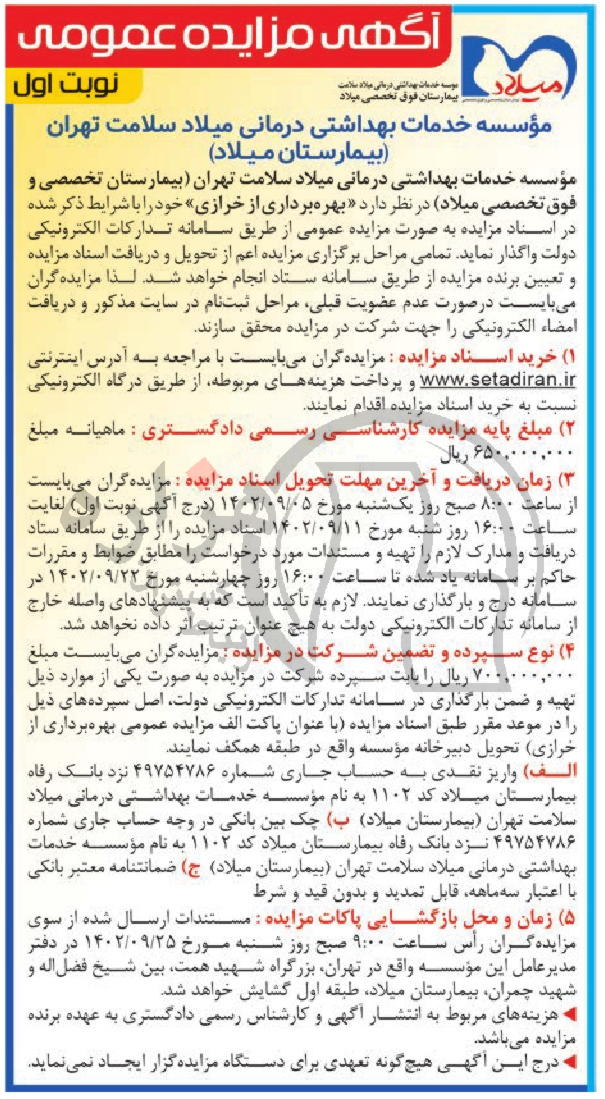 آگهی مزایده عمومی
نوبت اول
میلاد
موسسه خدمات بهداشتی درمانی میلاد سلامت
بیمارستان فوق تخصصی میلاد
مؤسسه خدمات بهداشتی درمانی میلاد سلامت تهران
(بیمارستان میلاد)
مؤسسه خدمات بهداشتی درمانی میلاد سلامت تهران (بیمارستان تخصصی و
فوق‌تخصصی میلاد) در نظر دارد «بهره‌برداری از خرازی» خود را با شرایط ذکر شده
در اسناد مزایده به صورت مزایده عمومی از طریق سامانه تدارکات الکترونیکی
دولت واگذار نماید. تمامی مراحل برگزاری مزایده اعم از تحویل و دریافت اسناد مزایده
و تعیین برنده مزایده از طریق سامانه ستاد انجام خواهد شد. لذا مزایده‌گران
می‌بایست درصورت عدم عضویت قبلی، مراحل ثبت‌نام در سایت مذکور و دریافت
امضاء الکترونیکی را جهت شرکت در مزایده محقق سازند.
۱) خرید اسناد مزایده : مزایده‌گران می‌بایست با مراجعه به آدرس اینترنتی
www.setadiran.ir و پرداخت هزینه‌های مربوطه، از طریق درگاه الکترونیکی
نسبت به خرید اسناد مزایده اقدام نمایند.
۲) مبلغ پایه مزایده کارشناسی رسمی دادگستری : ماهیانه مبلغ
۶۵۰,۰۰۰,۰۰۰ ریال
۳) زمان دریافت و آخرین مهلت تحویل اسناد مزایده : مزایده‌گران می‌بایست
از ساعت ۸:۰۰ صبح روز یک‌شنبه مورخ ۱۴۰۲/۰۹/۰۵ (درج آگهی نوبت اول) لغایت
ساعت ۱۶:۰۰ روز شنبه مورخ ۱۴۰۲/۰۹/۱۱ اسناد مزایده را از طریق سامانه ستاد
دریافت و مدارک لازم را تهیه و مستندات مورد درخواست را مطابق ضوابط و مقررات
حاکم بر سامانه یاد شده تا ساعت ۱۶:۰۰ روز چهارشنبه مورخ ۱۴۰۲/۰۹/۲۲ در
سامانه درج و بارگذاری نمایند. لازم به تأکید است که به پیشنهادهای واصله خارج
از سامانه تدارکات الکترونیکی دولت به هیچ عنوان ترتیب اثر داده نخواهد شد.
۴) نوع سپرده و تضمین شرکت در مزایده : مزایده‌گران می‌بایست مبلغ
۷۰۰,۰۰۰,۰۰۰ ریال را بابت سپرده شرکت در مزایده به صورت یکی از موارد ذیل
تهیه و ضمن بارگذاری در سامانه تدارکات الکترونیکی دولت، اصل سپرده‌های ذیل
را در موعد مقرر طبق اسناد مزایده (با عنوان پاکت الف مزایده عمومی بهره‌برداری از
خرازی) تحویل دبیرخانه مؤسسه واقع در طبقه همکف نمایند.
الف) واریز نقدی به حساب جاری شماره ۴۹۷۵۴۷۸۶ نزد بانک رفاه
بیمارستان میلاد کد ۱۱۰۲ به نام مؤسسه خدمات بهداشتی درمانی میلاد
سلامت تهران (بیمارستان میلاد) ب) چک بین بانکی در وجه حساب جاری شماره
۴۹۷۵۴۷۸۶ نزد بانک رفاه بیمارستان میلاد کد ۱۱۰۲ به نام مؤسسه خدمات
بهداشتی درمانی میلاد سلامت تهران (بیمارستان میلاد) ج) ضمانتنامه معتبر بانکی
با اعتبار سه‌ماهه، قابل تمدید و بدون قید و شرط
۵) زمان و محل بازگشایی پاکات مزایده : مستندات ارسال شده از سوی
مزایده‌گران رأس ساعت ۹:۰۰ صبح روز شنبه مورخ ۱۴۰۲/۰۹/۲۵ در دفتر
مدیرعامل این مؤسسه واقع در تهران، بزرگراه شهید همت، بین شیخ فضل‌اله و
شهید چمران، بیمارستان میلاد، طبقه اول گشایش خواهد شد.
◄ هزینه‌های مربوط به انتشار آگهی و کارشناس رسمی دادگستری به عهده برنده
مزایده می‌باشد.
◄ درج این آگهی هیچ‌گونه تعهدی برای دستگاه مزایده‌گزار ایجاد نمی‌نماید.